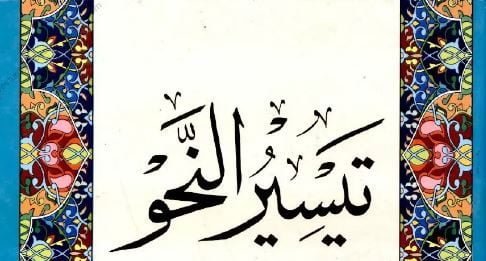 تَيْسِيرُ النَّحْوِ